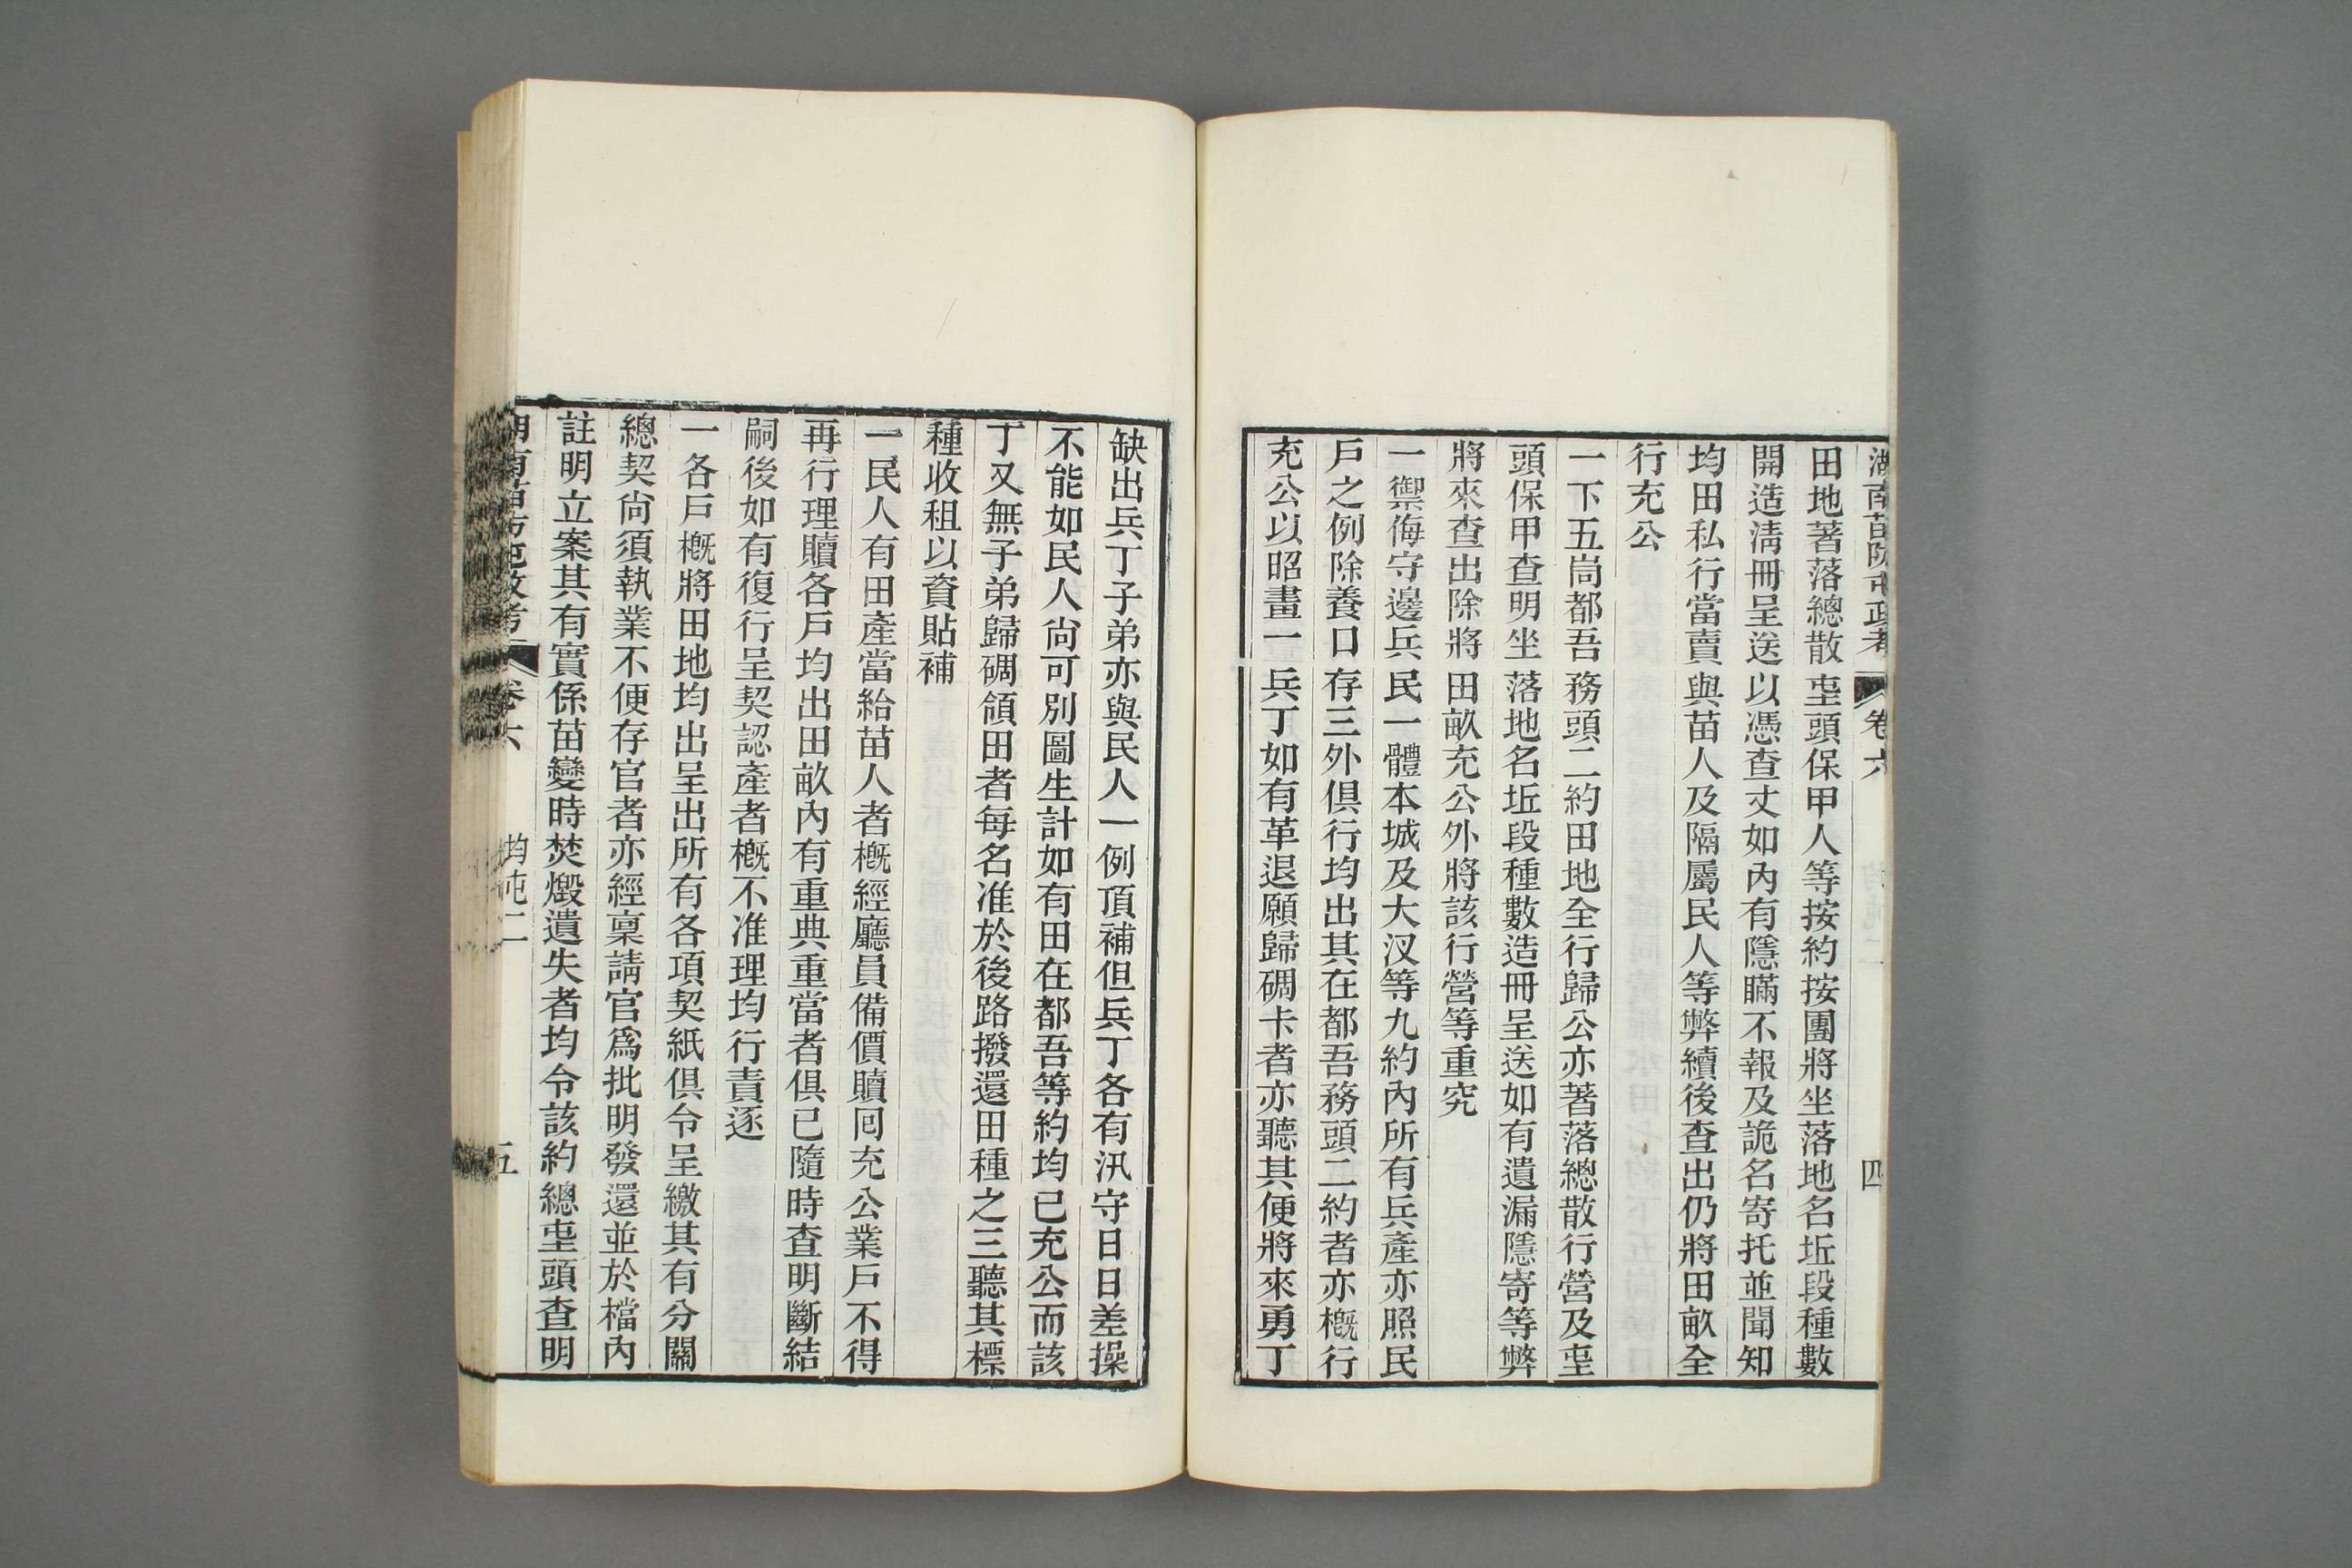 湖南苗防屯政考 卷六 四
田地著落總散坉頭保甲人等按約按團將坐落地名坵段種數
開造淸冊呈送以憑查丈如內有隱瞞不報及詭名寄托並聞知
均田私行當賣與苗人及隔屬民人等弊續後查出仍將田畝全
行充公
一下五峝都吾務頭二約田地全行歸公亦著落總散行營及坉
頭保甲查明坐落地名坵段種數造冊呈送如有遺漏隱寄等弊
將來查出除將田畝充公外將該行營等重究
一禦侮守邊兵民一體本城及大汊等九約內所有兵產亦照民
戶之例除養口存三外俱行均出其在都吾務頭二約者亦槪行
充公以昭畫一兵丁如有革退願歸碉卡者亦聽其便將來勇丁
缺出兵丁子弟亦與民人一例頂補但兵丁各有汛守日日差操
不能如民人尙可別圖生計如有田在都吾等約均已充公而該
丁又無子弟歸碉領田者每名准於後路撥還田種之三聽其標
種收租以資貼補
一民人有田產當給苗人者槪經廳員備價贖囘充公業戶不得
再行理贖各戶均出田畝內有重典重當者俱已隨時查明斷結
嗣後如有復行呈契認產者槪不准理均行責逐
一各戶槪將田地均出呈出所有各項契紙俱令呈繳其有分關
總契尙須執業不便存官者亦經稟請官爲批明發還並於檔內
註明立案其有實係苗變時焚燬遺失者均令該約總坉頭查明
湖南苗防屯政考 卷六 均屯二 五